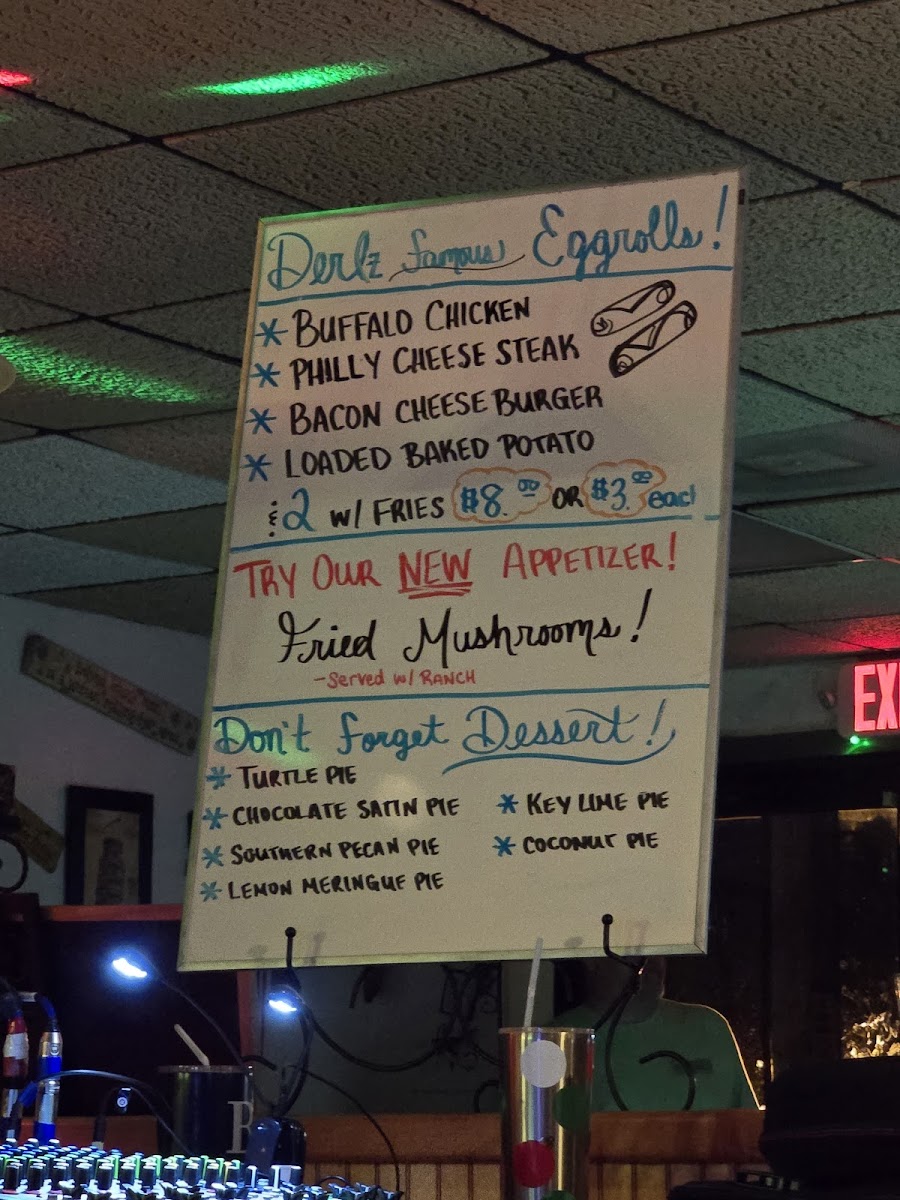 Derlz famous Eggrolls!
* BUFFALO CHICKEN
* PHILLY CHEESE STEAK
* BACON CHEESE BURGER
* LOADED BAKED POTATO
& 2 W/ FRIES $8.00 OR $3.00 each
TRY OUR NEW APPETIZER!
Fried Mushrooms!
- Served W/ RANCH
Don't forget Dessert!
* TURTLE PIE
* CHOCOLATE SATIN PIE
* SOUTHERN PECAN PIE
* LEMON MERINGUE PIE
* KEY LIME PIE
* COCONUT PIE
EX